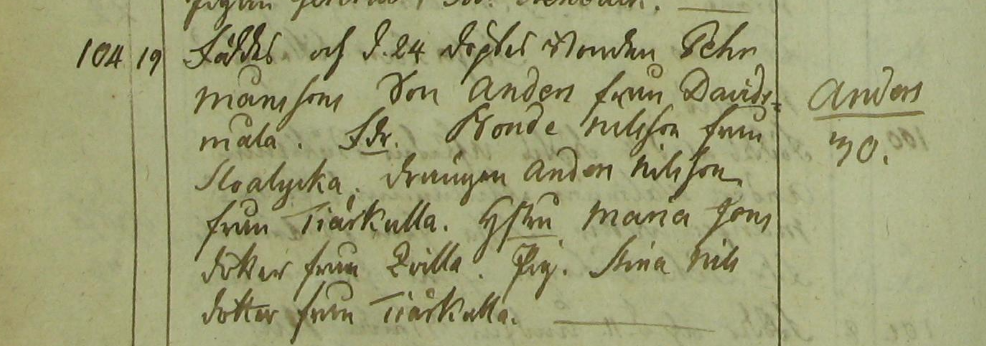 104 19 Föddes och d. 24 döptes Bonden Pehr
Månssons Son Anders från Davids-
måla. Fdr. Bonde Nilsson från
Sloalycka. drängen Anders Nilsson
från Tiärkulla. Hstru Maria Jons
dotter från Qvilla. Pig. Stina Nils
dotter från Tiärkulla.
Anders
30.